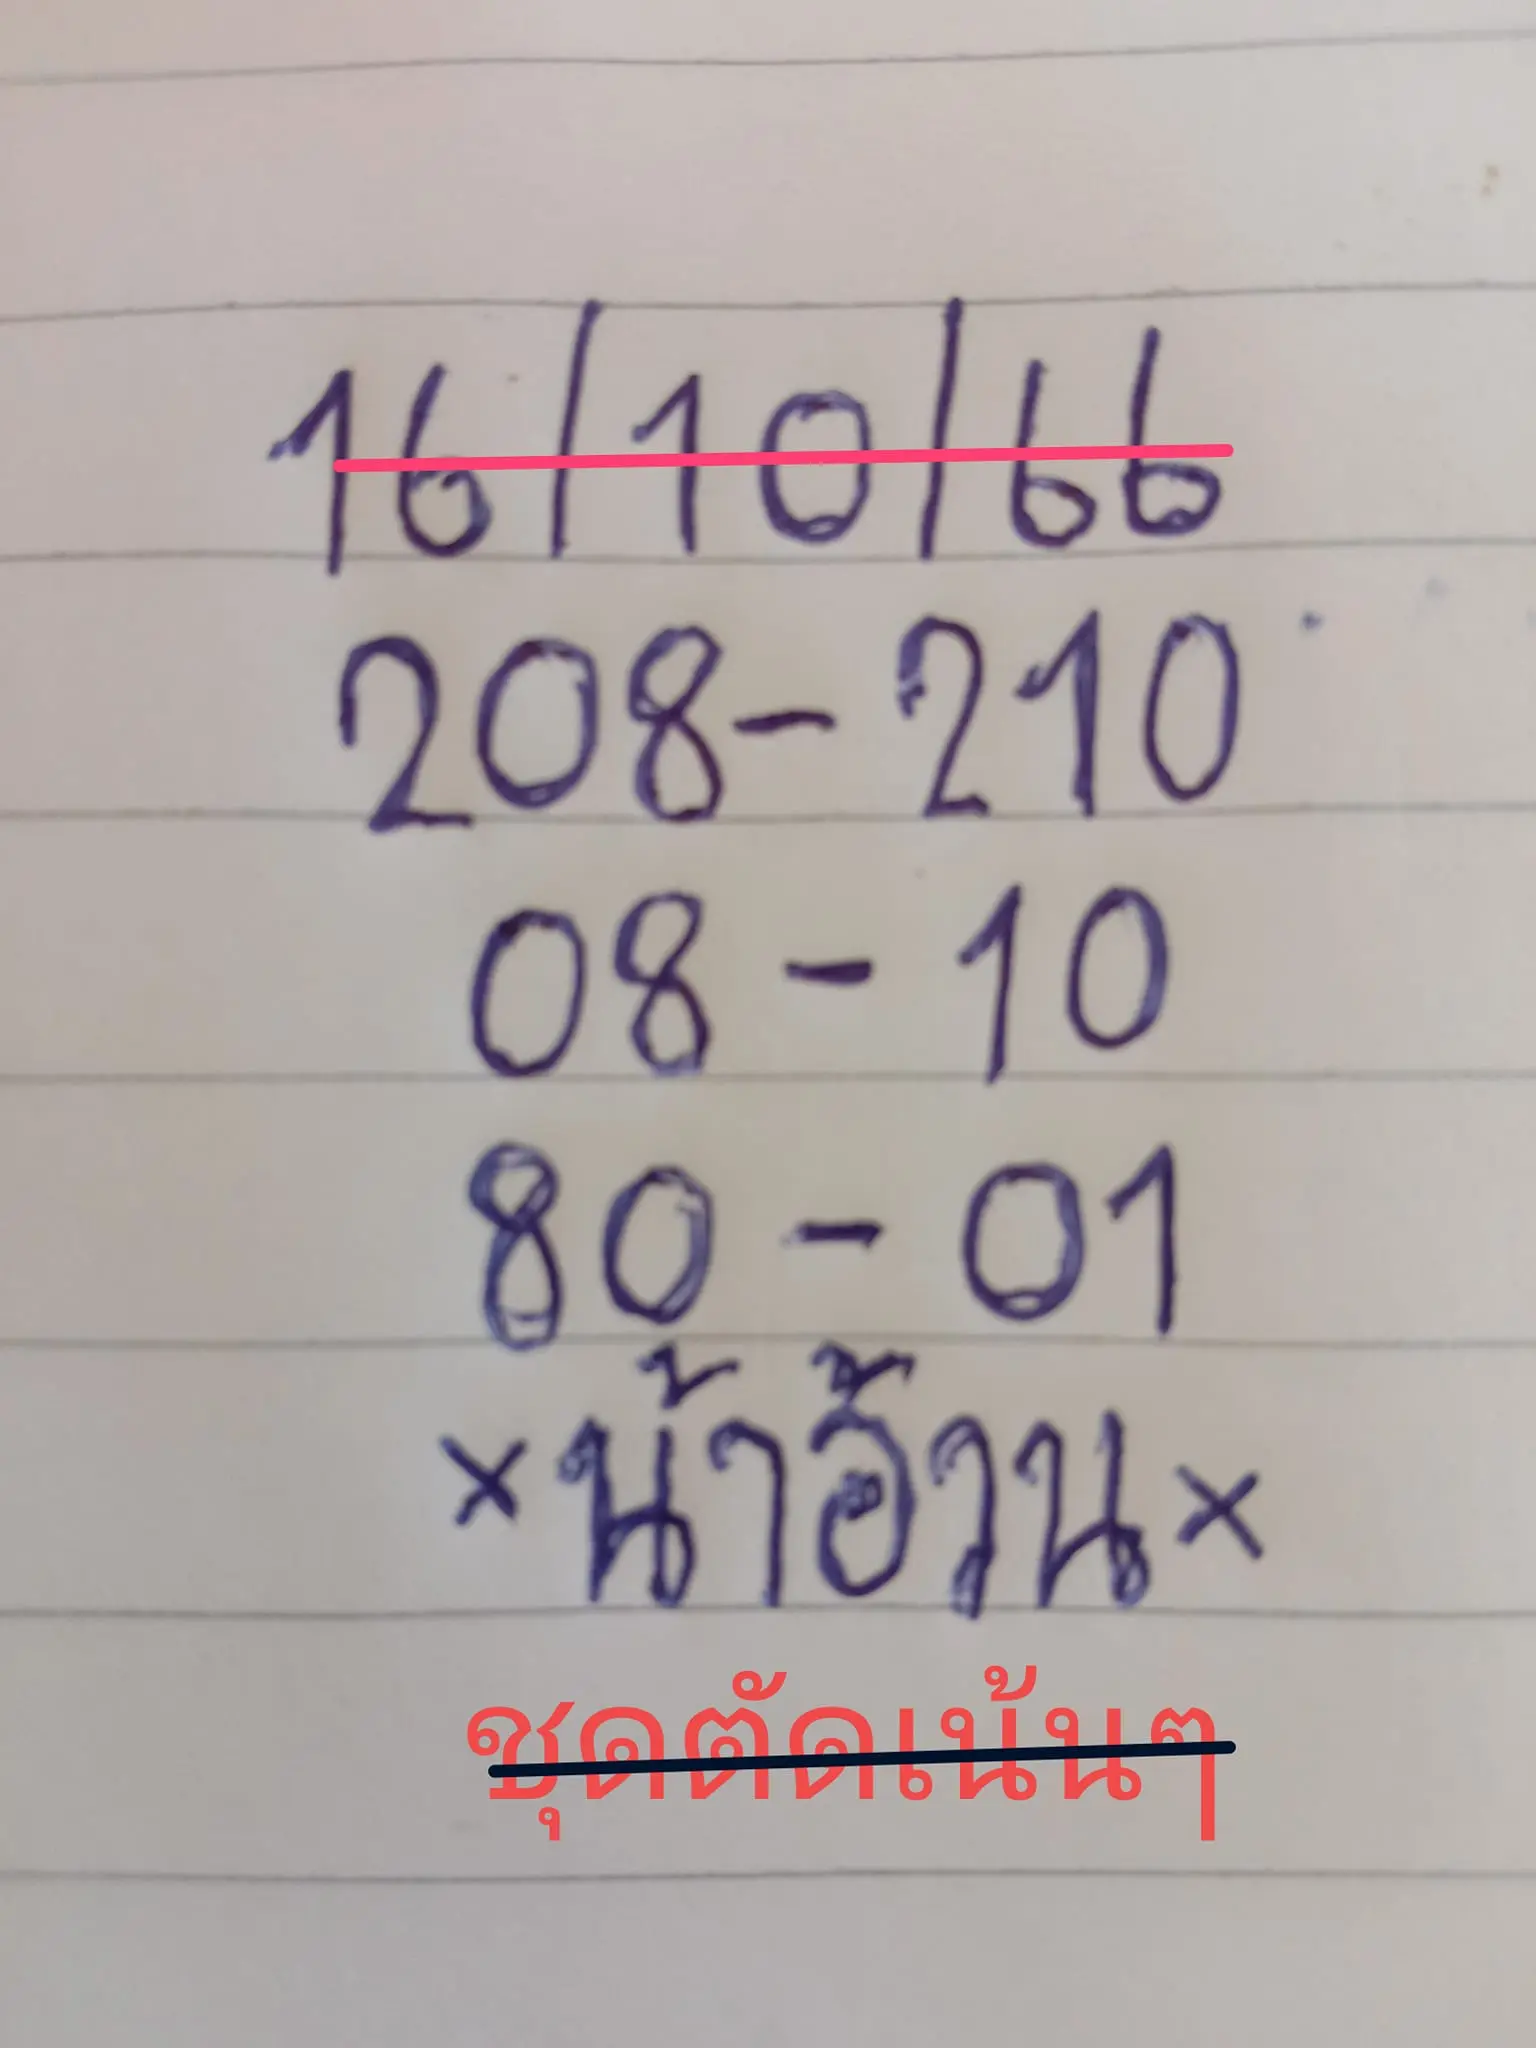 16/10/66
208-210
08-10
80-01
×น้าอ้วน×
ชุดตัดเน้นๆ